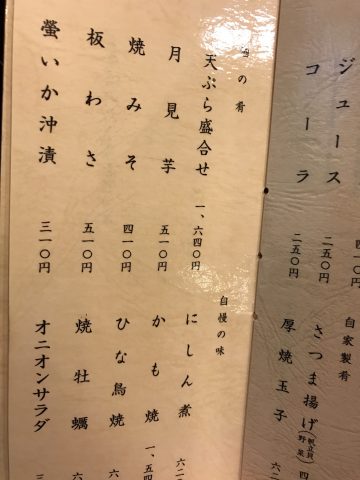 ジュース
二五〇円
コーラ
二五〇円
自家製肴
さつま揚げ(帆立貝 野菜)
厚焼玉子
の肴
天ぷら盛合せ
一、六四〇円
月見芋
五一〇円
焼みそ
四一〇円
板わさ
五一〇円
螢いか沖漬
三一〇円
自慢の味
にしん煮
かも焼
ひな鳥焼
焼牡蠣
オニオンサラダ